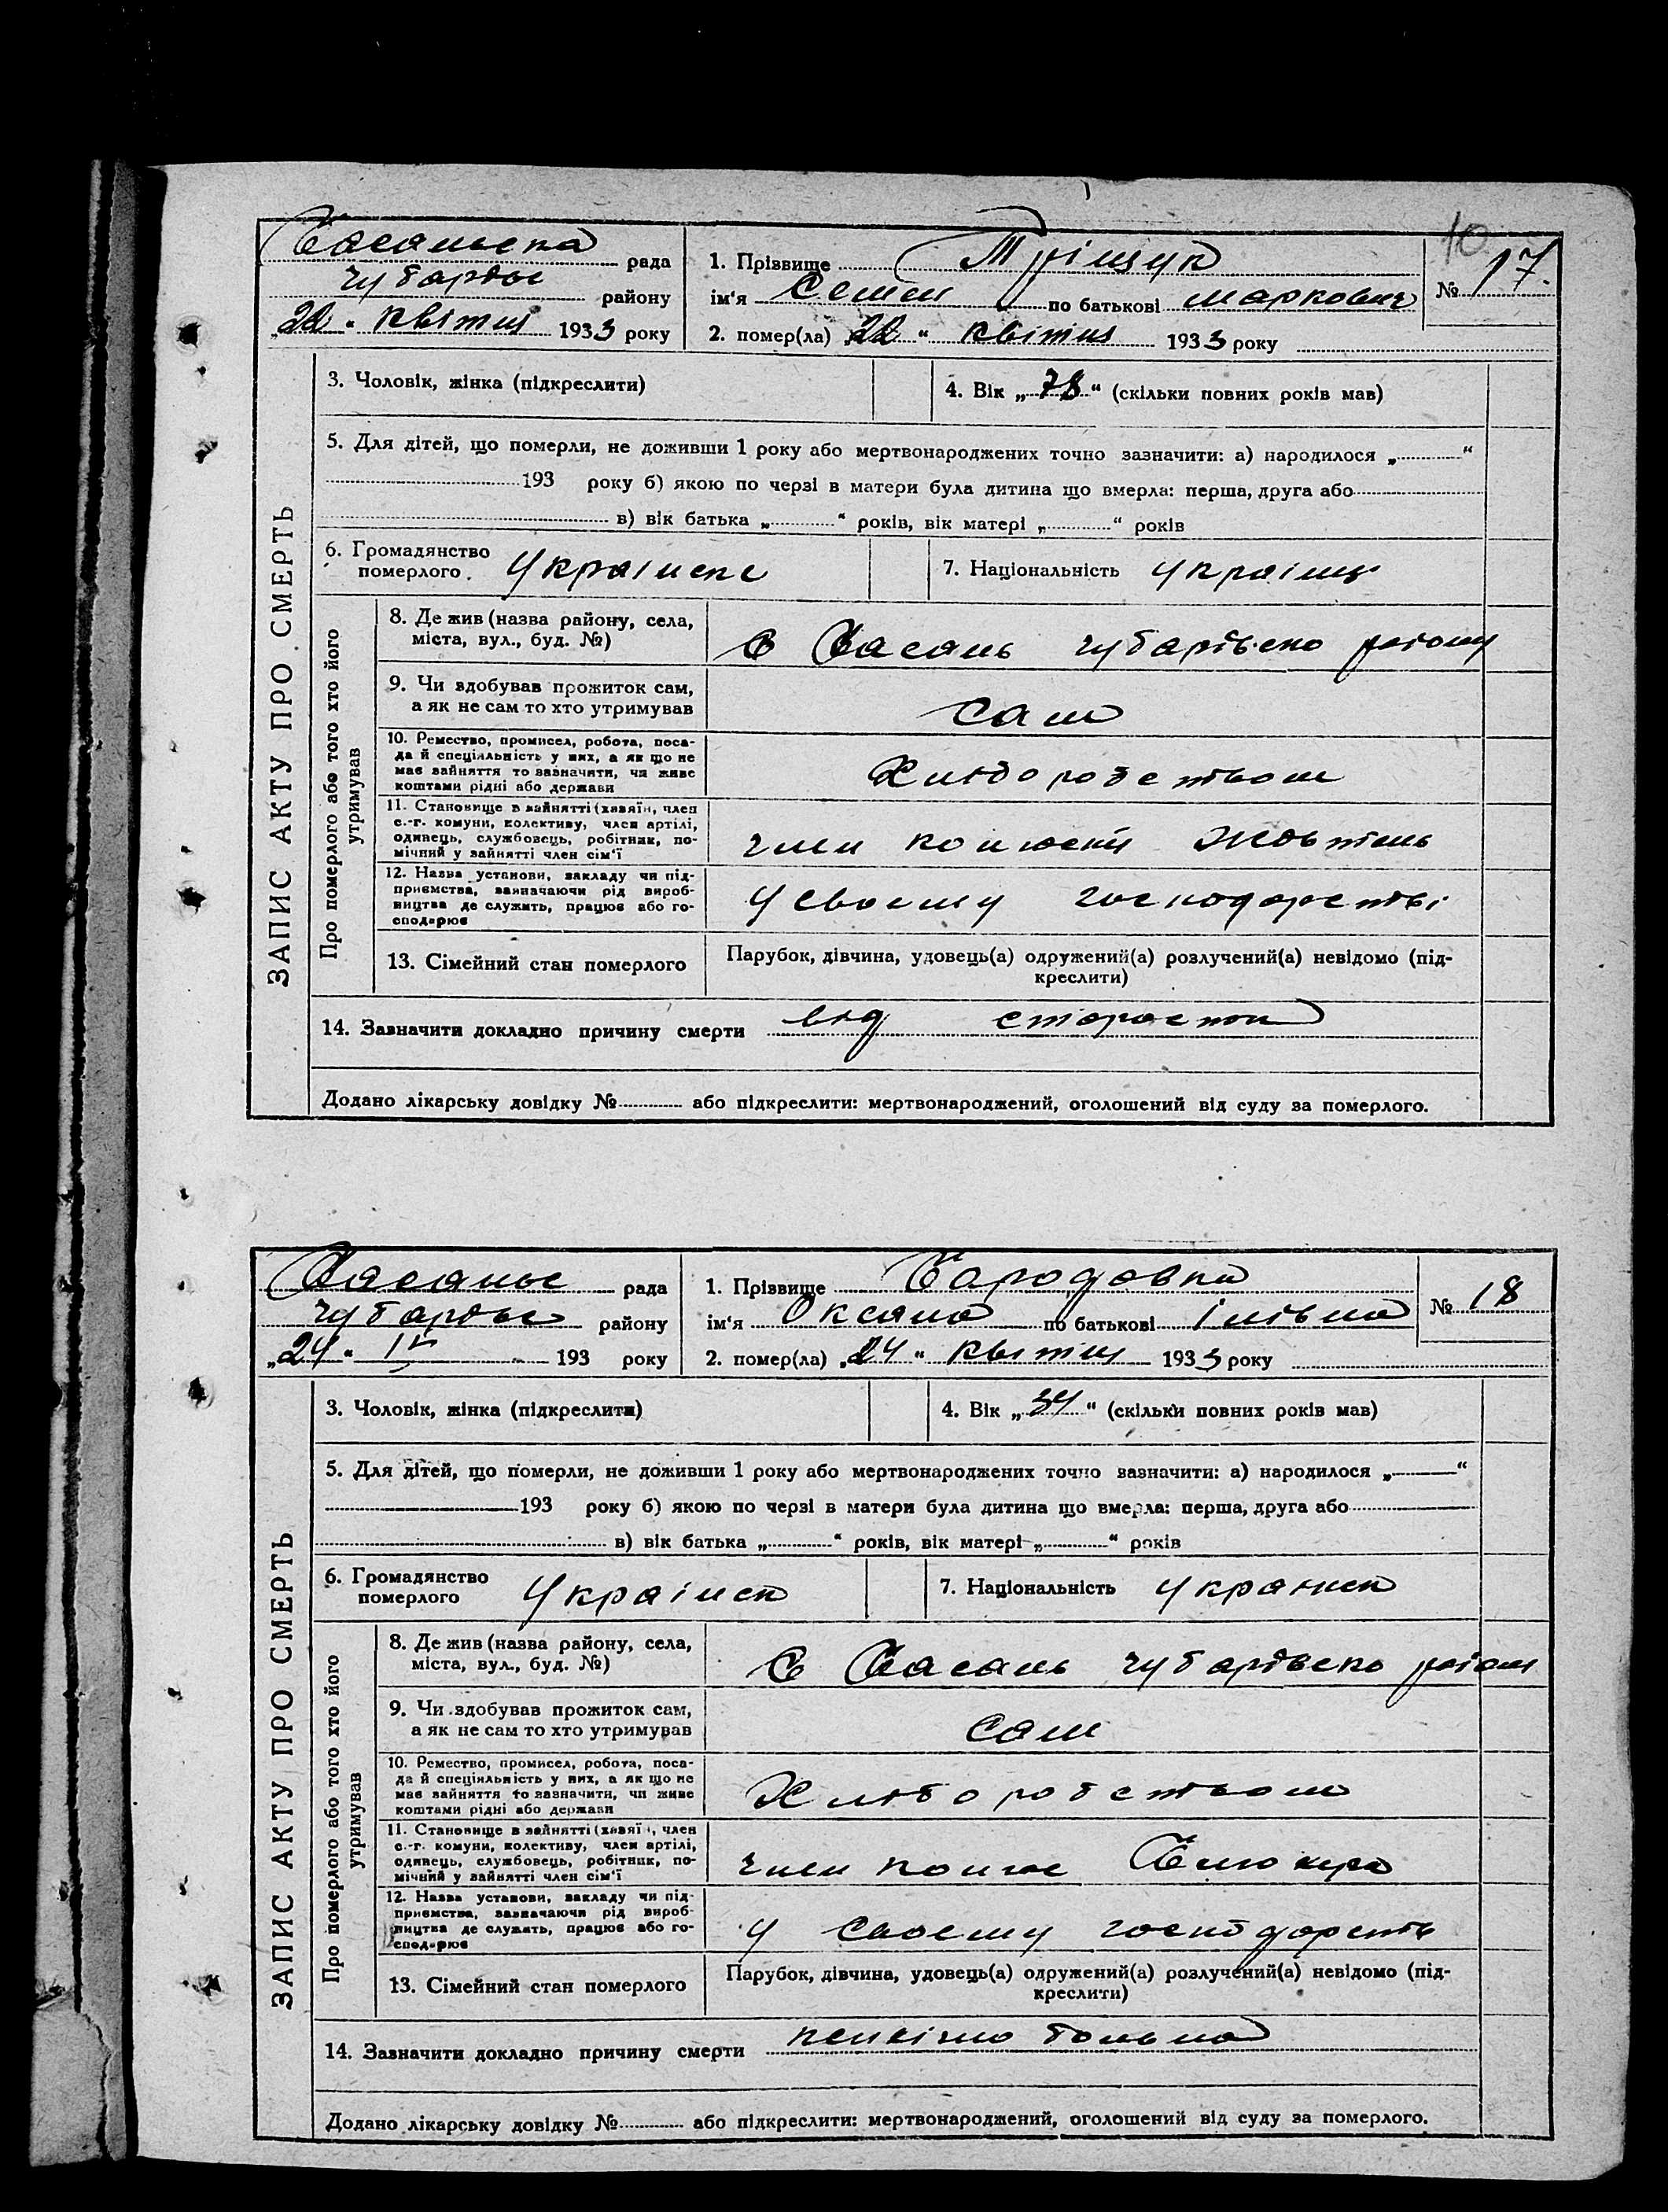 10
Басанська рада
Чубарівс району
„22“ квітня 1933 року
1. Прізвище Тріщук
ім'я Семен по батькові Маркович
№ 17.
2. помер(ла) „22“ квітня 1933 року
ЗАПИС АКТУ ПРО СМЕРТЬ
3. Чоловік, жінка (підкреслити)
4. Вік „78“ (скільки повних років мав)
5. Для дітей, що померли, не доживши 1 року або мертвонароджених точно зазначити: а) народилося „ “
193 року б) якою по черзі в матери була дитина що вмерла: перша, друга або
в) вік батька „ “ років, вік матері „ “ років
6. Громадянство
померлого Украінске
7. Національність украінц
Про померлого або того хто його
утримував
8. Де жив (назва району, села,
міста, вул., буд. №)
С Басань чубарівско раіону
9. Чи здобував прожиток сам,
а як не сам то хто утримував
сам
10. Ремество, промисел, робота, поса-
да й спеціяльність у них, а як що не
має зайняття то зазначити, чи живе
коштами рідні або держави
Хліборобством
11. Становище в зайнятті (хазяїн, член
с.-г. комуни, колективу, член артілі,
одинець, службовець, робітник, по-
мічний у зайнятті член сім'ї
член Жовтень
12. Назва установи, закладу чи під-
приємства, зазначаючи рід вироб-
ництва де служить, працює або го-
сподарює
У своєму господарстві
13. Сімейний стан померлого
Парубок, дівчина, удовець(а) одружений(а) розлучений(а) невідомо (під-
креслити)
14. Зазначити докладно причину смерти від старости
Додано лікарську довідку № або підкреслити: мертвонароджений, оголошений від суду за померлого.
Басансь рада
Чубарівс району
„24“ IV 193 року
1. Прізвище Бородовка
ім'я Оксана по батькові Ілівна
№ 18
2. помер(ла) „24“ квітня 1933 року
ЗАПИС АКТУ ПРО СМЕРТЬ
3. Чоловік, жінка (підкреслити)
4. Вік „34“ (скільки повних років мав)
5. Для дітей, що померли, не доживши 1 року або мертвонароджених точно зазначити: а) народилося „ “
193 року б) якою по черзі в матери була дитина що вмерла: перша, друга або
в) вік батька „ “ років, вік матері „ “ років
6. Громадянство
померлого Украінск
7. Національність
Про померлого або того хто його
утримував
8. Де жив (назва району, села,
міста, вул., буд. №)
С Басань чубарівско раіону
9. Чи здобував прожиток сам,
а як не сам то хто утримував
сам
10. Ремество, промисел, робота, поса-
да й спеціяльність у них, а як що не
має зайняття то зазначити, чи живе
коштами рідні або держави
Хліборобством
11. Становище в зайнятті (хазяїн, член
с.-г. комуни, колективу, член артілі,
одинець, службовець, робітник, по-
мічний у зайнятті член сім'ї
член
12. Назва установи, закладу чи під-
приємства, зазначаючи рід вироб-
ництва де служить, працює або го-
сподарює
У своєму
13. Сімейний стан померлого
Парубок, дівчина, удовець(а) одружений(а) розлучений(а) невідомо (під-
креслити)
14. Зазначити докладно причину смерти больна
Додано лікарську довідку № або підкреслити: мертвонароджений, оголошений від суду за померлого.